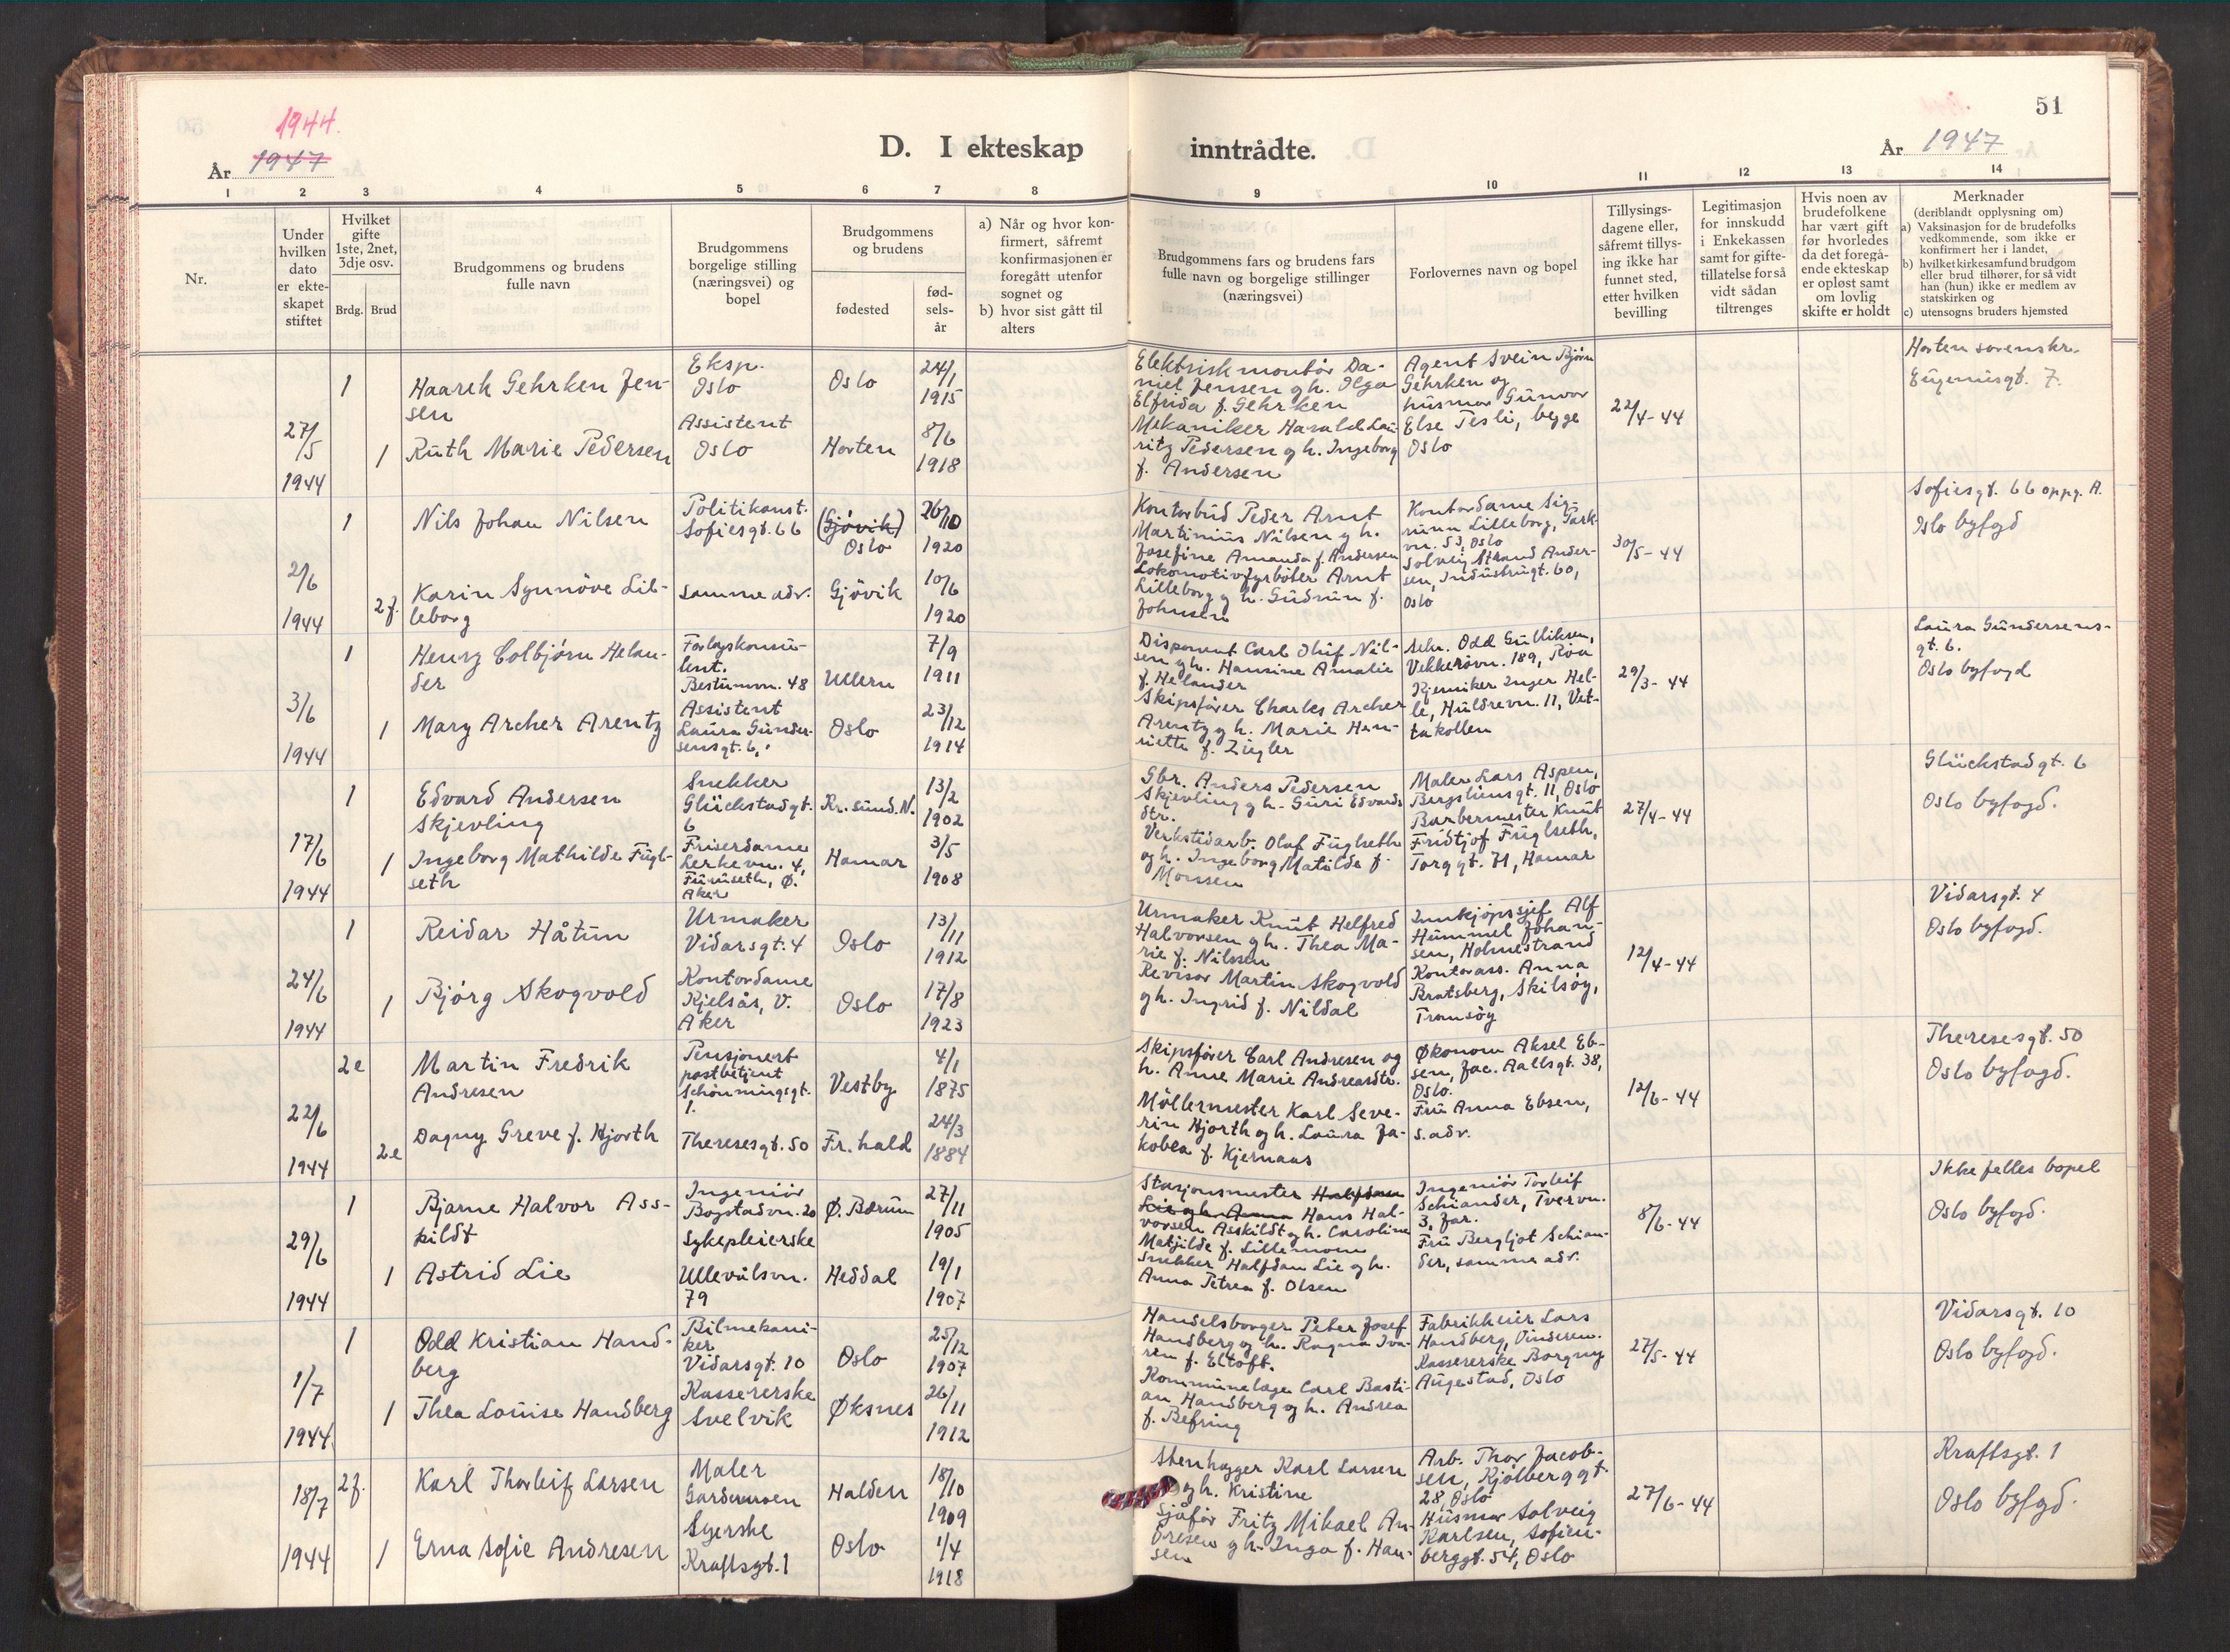 1944.
År 1947
D. I ekteskap
inntrådte.
År 1947
51
1 2 3 4 5 6 7 8 9 10 11 12 13 14
Nr.
Under hvilken dato er ekteskapet stiftet
Hvilket gifte 1ste, 2net, 3dje osv.
Brdg. Brud
Brudgommens og brudens fulle navn
Brudgommens borgelige stilling (næringsvei) og bopel
Brudgommens og brudens
fødested
fødselsår
a) Når og hvor konfirmert, såfremt konfirmasjonen er foregått utenfor sognet og
b) hvor sist gått til alters
Brudgommens fars og brudens fars fulle navn og borgelige stillinger (næringsvei)
Forlovernes navn og bopel
Tillysingsdagene eller, såfremt tillysing ikke har funnet sted, etter hvilken bevilling
Legitimasjon for innskudd i Enkekassen samt for giftetillatelse for så vidt sådan tiltrenges
Hvis noen av brudefolkene har vært gift før hvorledes da det foregående ekteskap er opløst samt om lovlig skifte er holdt
Merknader
(deriblandt opplysning om)
a) Vaksinasjon for de brudefolks vedkommende, som ikke er konfirmert her i landet,
b) hvilket kirkesamfund brudgom eller brud tilhører, for så vidt han (hun) ikke er medlem av statskirken og
c) utensogns bruders hjemsted
27/5 1944
1 Haarek Gehrken Jensen
Eksp. Oslo
Oslo
24/1 1915
Elektrisk montör Daniel Jensen gh. Olga Elfrida f. Gehrken
Agent Svein Bjørn Gehrken og husmor Gunvor Else Tesli, begge Oslo
22/4-44
Horten sorenskr.
Eugeniesgt. 7.
1 Ruth Marie Pedersen
Assistent Oslo
Horten
8/6 1918
Mekaniker Harald Lauritz Pedersen gh. Ingeborg f. Andersen
2/6 1944
1 Nils Johan Nilsen
Politikonst. Sofiesgt. 66
(Gjövik) Oslo
26/10 1920
Kontorbud Peder Arnt Martinius Nilsen gh. Josefine Amanda f. Andersen
Kontordame Sigrunn Lilleborg, Park-
vn. 53, Oslo
Solveig Strand Andersen, Industrigt. 60, Oslo
30/5-44
Sofiesgt. 66 oppg. A.
Oslo byfogd
2f. Karin Synnöve Lilleborg
samme adr.
Gjövik
10/6 1920
Lokomotivfyrböter Arnt Lilleborg gh. Gudrun f. Johnsen
3/6 1944
1 Henry Colbjörn Helander
Forlagskonsulent. Bestumvn. 48
Ullern
7/9 1911
Disponent Carl Oluf Nilsen gh. Hansine Amalie f. Helander
Sekr. Odd Gulliksen, Vekkerövn. 189, Röa
Kjemiker Inger Helle, Huldrevn. 11, Vettakollen
29/3-44
Laura Gundersensgt. 6.
Oslo byfogd
1 Mary Archer Arentz
Assistent Laura Gundersensgt. 6,
Oslo
23/12 1914
Skipsförer Charles Archer Arentz gh. Marie Henriette f. Ziegler
17/6 1944
1 Edvard Andersen Skjevling
Snekker Glückstadgt. 6
Kr. sund. N.
13/2 1902
Gbr. Anders Pedersen Skjevling gh. Guri Edvardsdtr.
Maler Lars Aspen, Bergsliensgt. 11, Oslo
Barbermester Knut Fridtjof Fuglseth, Torggt. 71, Hamar
27/4-44
Glückstadgt. 6
Oslo byfogd.
1 Ingeborg Mathilde Fuglseth
Friserdame Lerkevn. 4, Furuseth, Ø. Aker
Hamar
3/5 1908
Verkstedarb. Olaf Fuglseth og h. Ingeborg Matilde f. Monssen
24/6 1944
1 Reidar Håtun
Urmaker Vidarsgt. 4
Oslo
13/11 1912
Urmaker Knut Helfred Halvorsen gh. Thea Marie f. Nilssen
Innkjöpssjef Alf Hummel Johansen, Holmestrand
Kontorass. Anna Bratsberg, Skilsöy, Tromöy
12/4-44
Vidarsgt. 4
Oslo byfogd.
1 Bjørg Skogvold
Kontordame Kjelsås, V. Aker
Oslo
17/8 1923
Revisor Martin Skogvold gh. Ingrid f. Nildal
22/6 1944
2e Martin Fredrik Andresen
Pensjonert postbetjent Schönningsgt. 1.
Vestby
4/1 1875
Skipsförer Carl Andresen og h. Anne Marie Andreasdtr.
Økonom Aksel Ebsen, Jac. Aallsgt. 38, Oslo.
Fru Anna Ebsen, s. adr.
12/6-44
Theresesgt. 50
Oslo byfogd.
2e Dagny Greve f. Hjorth
Theresesgt. 50
Fr. hald
24/3 1884
Möllermester Karl Severin Hjorth gh. Laura Jakobea f. Kjernaas
29/6 1944
1 Bjarne Halvor Asskildt
Ingeniör Bogstadvn. 20
Ø. Bærum
27/11 1905
Stasjonsmester Halfdan Lie gh. Anna Hans Halvorsen Asskildt gh. Caroline Matjilde f. Lillemoen
Ingeniör Torleif Schiander, Tvervn. 3, Jar.
Fru Bergljot Schiander, samme adr.
8/6-44
Ikke felles bopel
Oslo byfogd.
1 Astrid Lie
Sykepleierske Ullevålsvn. 79
Heddal
19/1 1907
Snekker Halfdan Lie gh. Anna Petrea f. Olsen
1/7 1944.
1 Odd Kristian Handberg
Bilmekaniker Vidarsgt. 10
Oslo
25/12 1907
Handelsborger Peter Josef Handberg og h. Ragna Ivaren f. Eltoft.
Fabrikkeier Lars Handberg, Vinderen.
Kassererske Borgny Augestad, Oslo
27/5-44
Vidarsgt. 10
Oslo byfogd.
1 Thea Louise Handberg
Kassererske Svelvik
Øksnes
26/11 1912
Kommunelæge Carl Bastian Handberg og h. Andrea f. Befring
18/7 1944
2f. Karl Thorleif Larsen
Maler Gardermoen
Halden
18/10 1909
Stenhugger Karl Larsen og h. Kristine
Arb. Thor Jacobsen, Kjölberggt. 28, Oslo
Husmor Solveig Karlsen, Sofienberggt. 54, Oslo
27/6-44
Kraftsgt. 1
Oslo byfogd.
1 Erna Sofie Andresen
Syerske Kraftsgt. 1
Oslo
1/4 1918
Sjåför Fritz Mikael Andresen gh. Inga f. Hansen